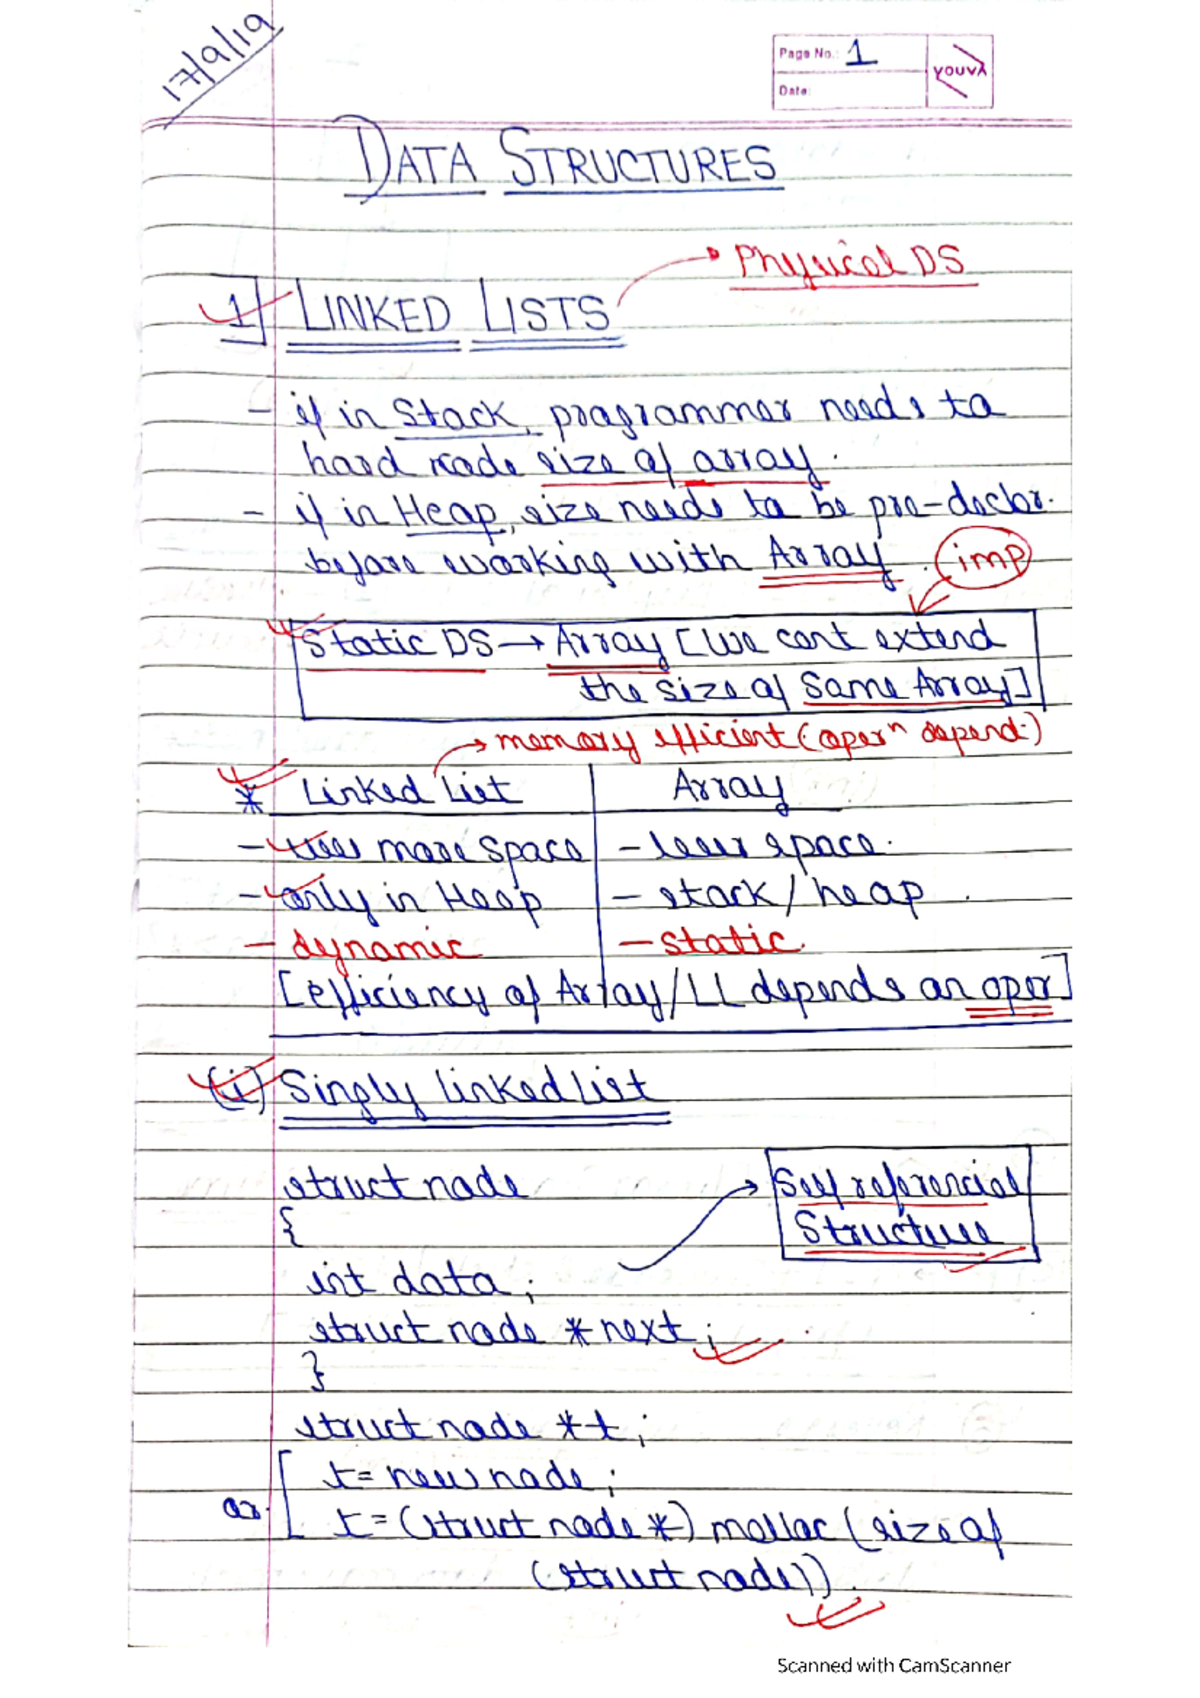 17/9/19
Page No.: 1
Date:
YOUVA
DATA STRUCTURES
→ Physical DS
1] LINKED LISTS
- if in Stack, programmer needs to
hard code size of array.
- if in Heap, size needs to be pre-declar.
before working with Array. imp
Static DS → Array [We cant extend
the size of Same Array]
→ memory efficient (oper^n depend.)
* Linked List Array
- uses more space - less space.
- only in Heap - stack / heap.
- dynamic - static.
[efficiency of Array/LL depends on oper]
(i) Singly linked list
struct node → Self referencial
{ Structure
int data ;
struct node * next ;
}
struct node *t ;
t = new node ;
or t = (struct node *) malloc (size of
(struct node)).
Scanned with CamScanner